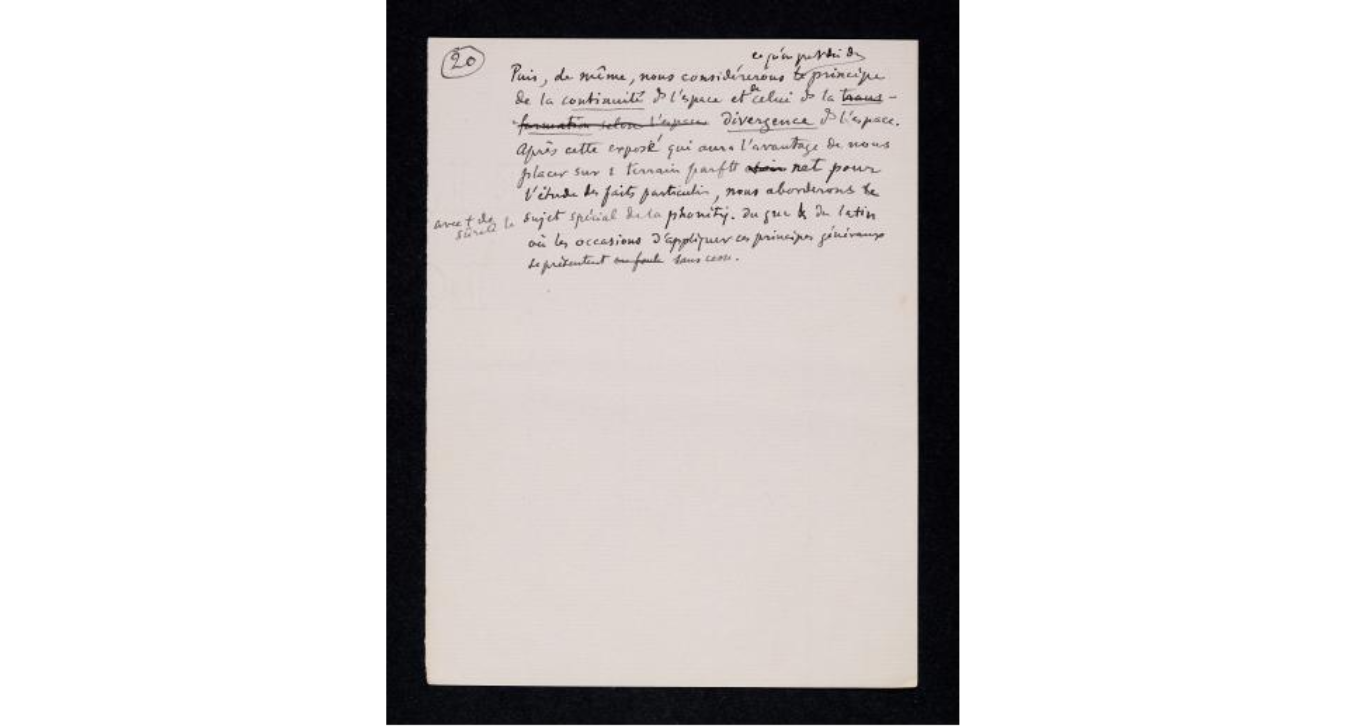 20
ce qu'on peut dire du
Puis, de même, nous considérerons le principe
de la continuité ds l'espace et de celui de la trans-
formation selon l'espace divergence ds l'espace.
Après cette exposé qui aura l'avantage de nous
placer sur 1 terrain parft net pour
l'étude des faits particuliers, nous aborderons
avec + de sûreté le
sujet spécial de la phonétiq. du grec & du latin
où les occasions d'appliquer ces principes généraux
se présentent en foule sans cesse.